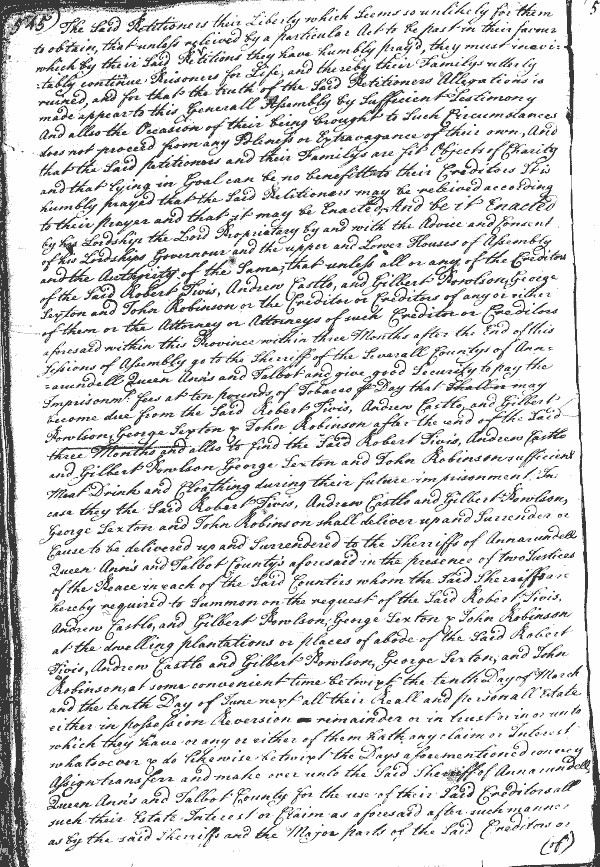 545) The Said Petitioners their Liberty which Seems so unlikely for them
to obtain, that unless releived by a particular Act to be past in their favour
which by their Said Petitions they have humbly pray'd, they must inevi-
-tably continue Prisoners for Life, and thereby their Familys utterly
ruined, and for that the truth of the Said Petitioners Allegations is
made appear to this Generall Assembly by Sufficient Testimony
And allso the Occasion of their being brought to Such Circumstances
does not proceed from any Idleness or Extravagance of their own, And
that the Said petitioners and their Familys are fit Objects of Charity
and that lying in Goal can be no benefitt to their Creditors It is
humbly prayed that the Said Petitioners may be releived according
to their prayer and that it may be Enacted, And be it Enacted
by his Lordship the Lord Propriatary by and with the Advice and Consent
of his Lordships Governour and the upper and Lower Houses of Assembly
and the Authority of the Same, that unless all or any of the Creditors
of the Said Robert Tivis, Andrew Castlo, and Gilbert Powlson, George
Sexton and John Robinson or the Creditor or Creditors of any or either
of them or the Attorney or Attorneys of such Creditor or Creditors
aforesaid within this Province within three Months after the End of this
Sessions of Assembly go to the Sherriff of the Severall Countys of Ann-
=arundell Queen Ann's and Talbot and give good Security to pay the
Imprisonmt. Fees at ten pounds of Tobacco p Day that shall or may
become due from the Said Robert Tivis, Andrew Castlo, and Gilbert
Powlson, George Sexton & John Robinson after the end of the Said
three Months and allso to find the Said Robert Tivis, Andrew Castlo
and Gilbert Powlson George Sexton and John Robinson sufficient
Meat Drink and Cloathing during their future imprisonment. In
case they the Said Robert Tivis, Andrew Castlo and Gilbert Powlson,
George Sexton and John Robinson shall deliver up and Surrender or
Cause to be delivered up and Surrendered to the Sherriffs of Annarundell
Queen Ann's and Talbot County's aforesaid in the presence of two Justices
of the Peace in each of the Said Counties whom the Said Sherriffs are
hereby required to Summon on the request of the Said Robert Tivis,
Andrew Castlo, and Gilbert Powlson, George Sexton & John Robinson
at the dwelling plantations or places of abode of the Said Robert
Tivis, Andrew Castlo and Gilbert Powlson, George Sexton, and John
Robinson, at some convenient time betwixt the tenth Day of March
and the tenth Day of June next all their Reall and personall Estate
either in possession Reversion remainder or in trust or in or unto
which they have or any or either of them hath any claim or Interest
whatsoever & do likewise betwixt the Days aforementioned convey
Assign transferr and make over unto the Said Sherriff of Annarundell,
Queen Ann's and Talbot County for the use of their Said Creditors all
such their Estate Interest or Claim as aforesaid after such manner
as by the said Sherriffs and the Major parts of the Said Creditors or
(of)